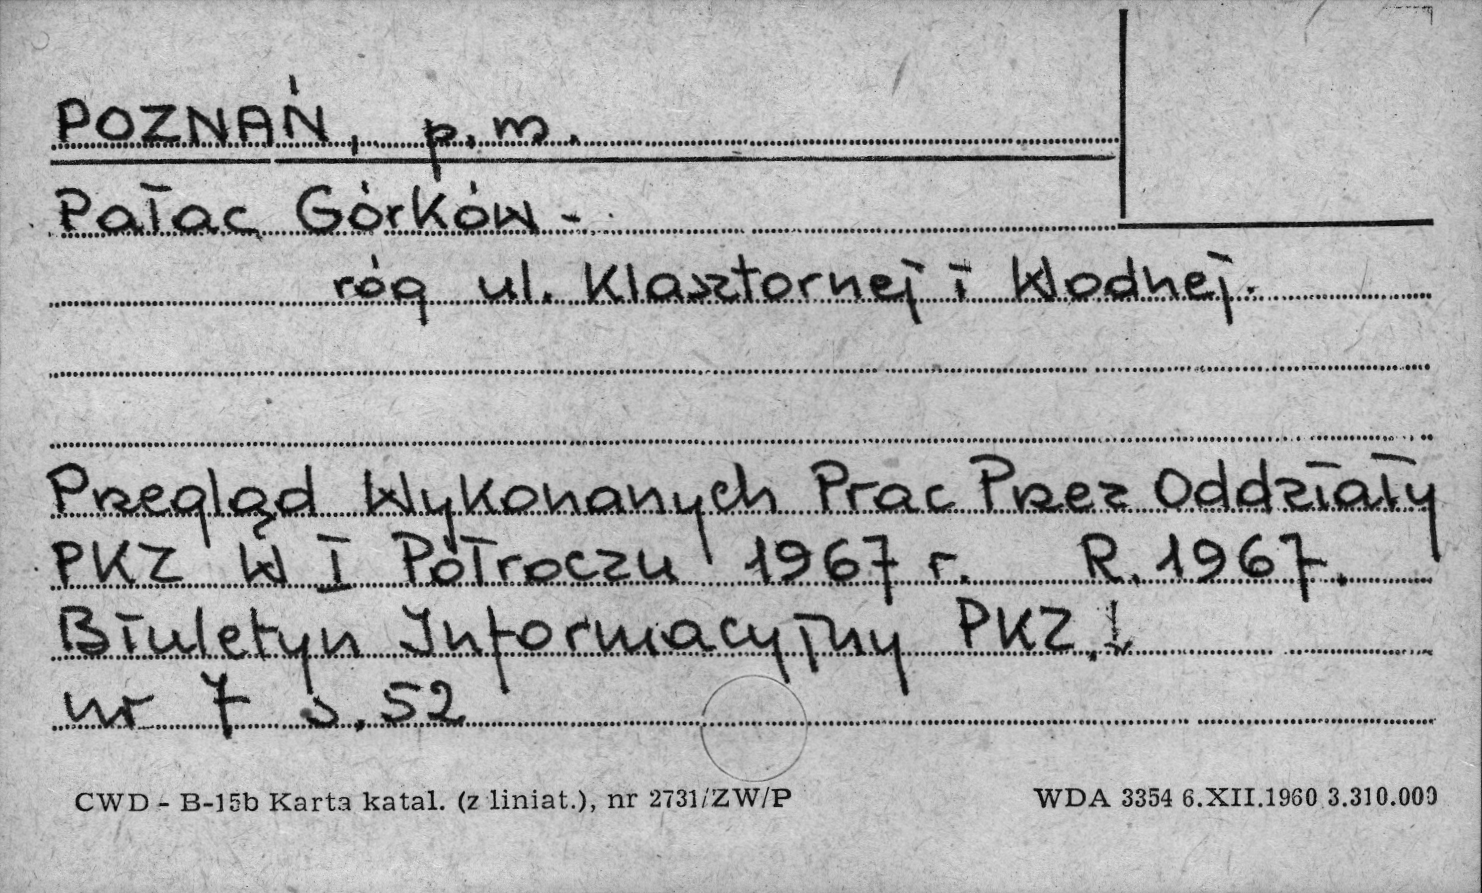 POZNAŃ, p.m.
Pałac Górków -
róg ul. Klasztornej i Wodnej.
Przegląd Wykonanych Prac Przez Oddziały
PKZ W I Półroczu 1967 r. R. 1967.
Biuletyn Informacyjny PKZ,
nr 7 s. 52
CWD - B-15b Karta katal. (z liniat.), nr 2731/ZW/P WDA 3354 6.XII.1960 3.310.000